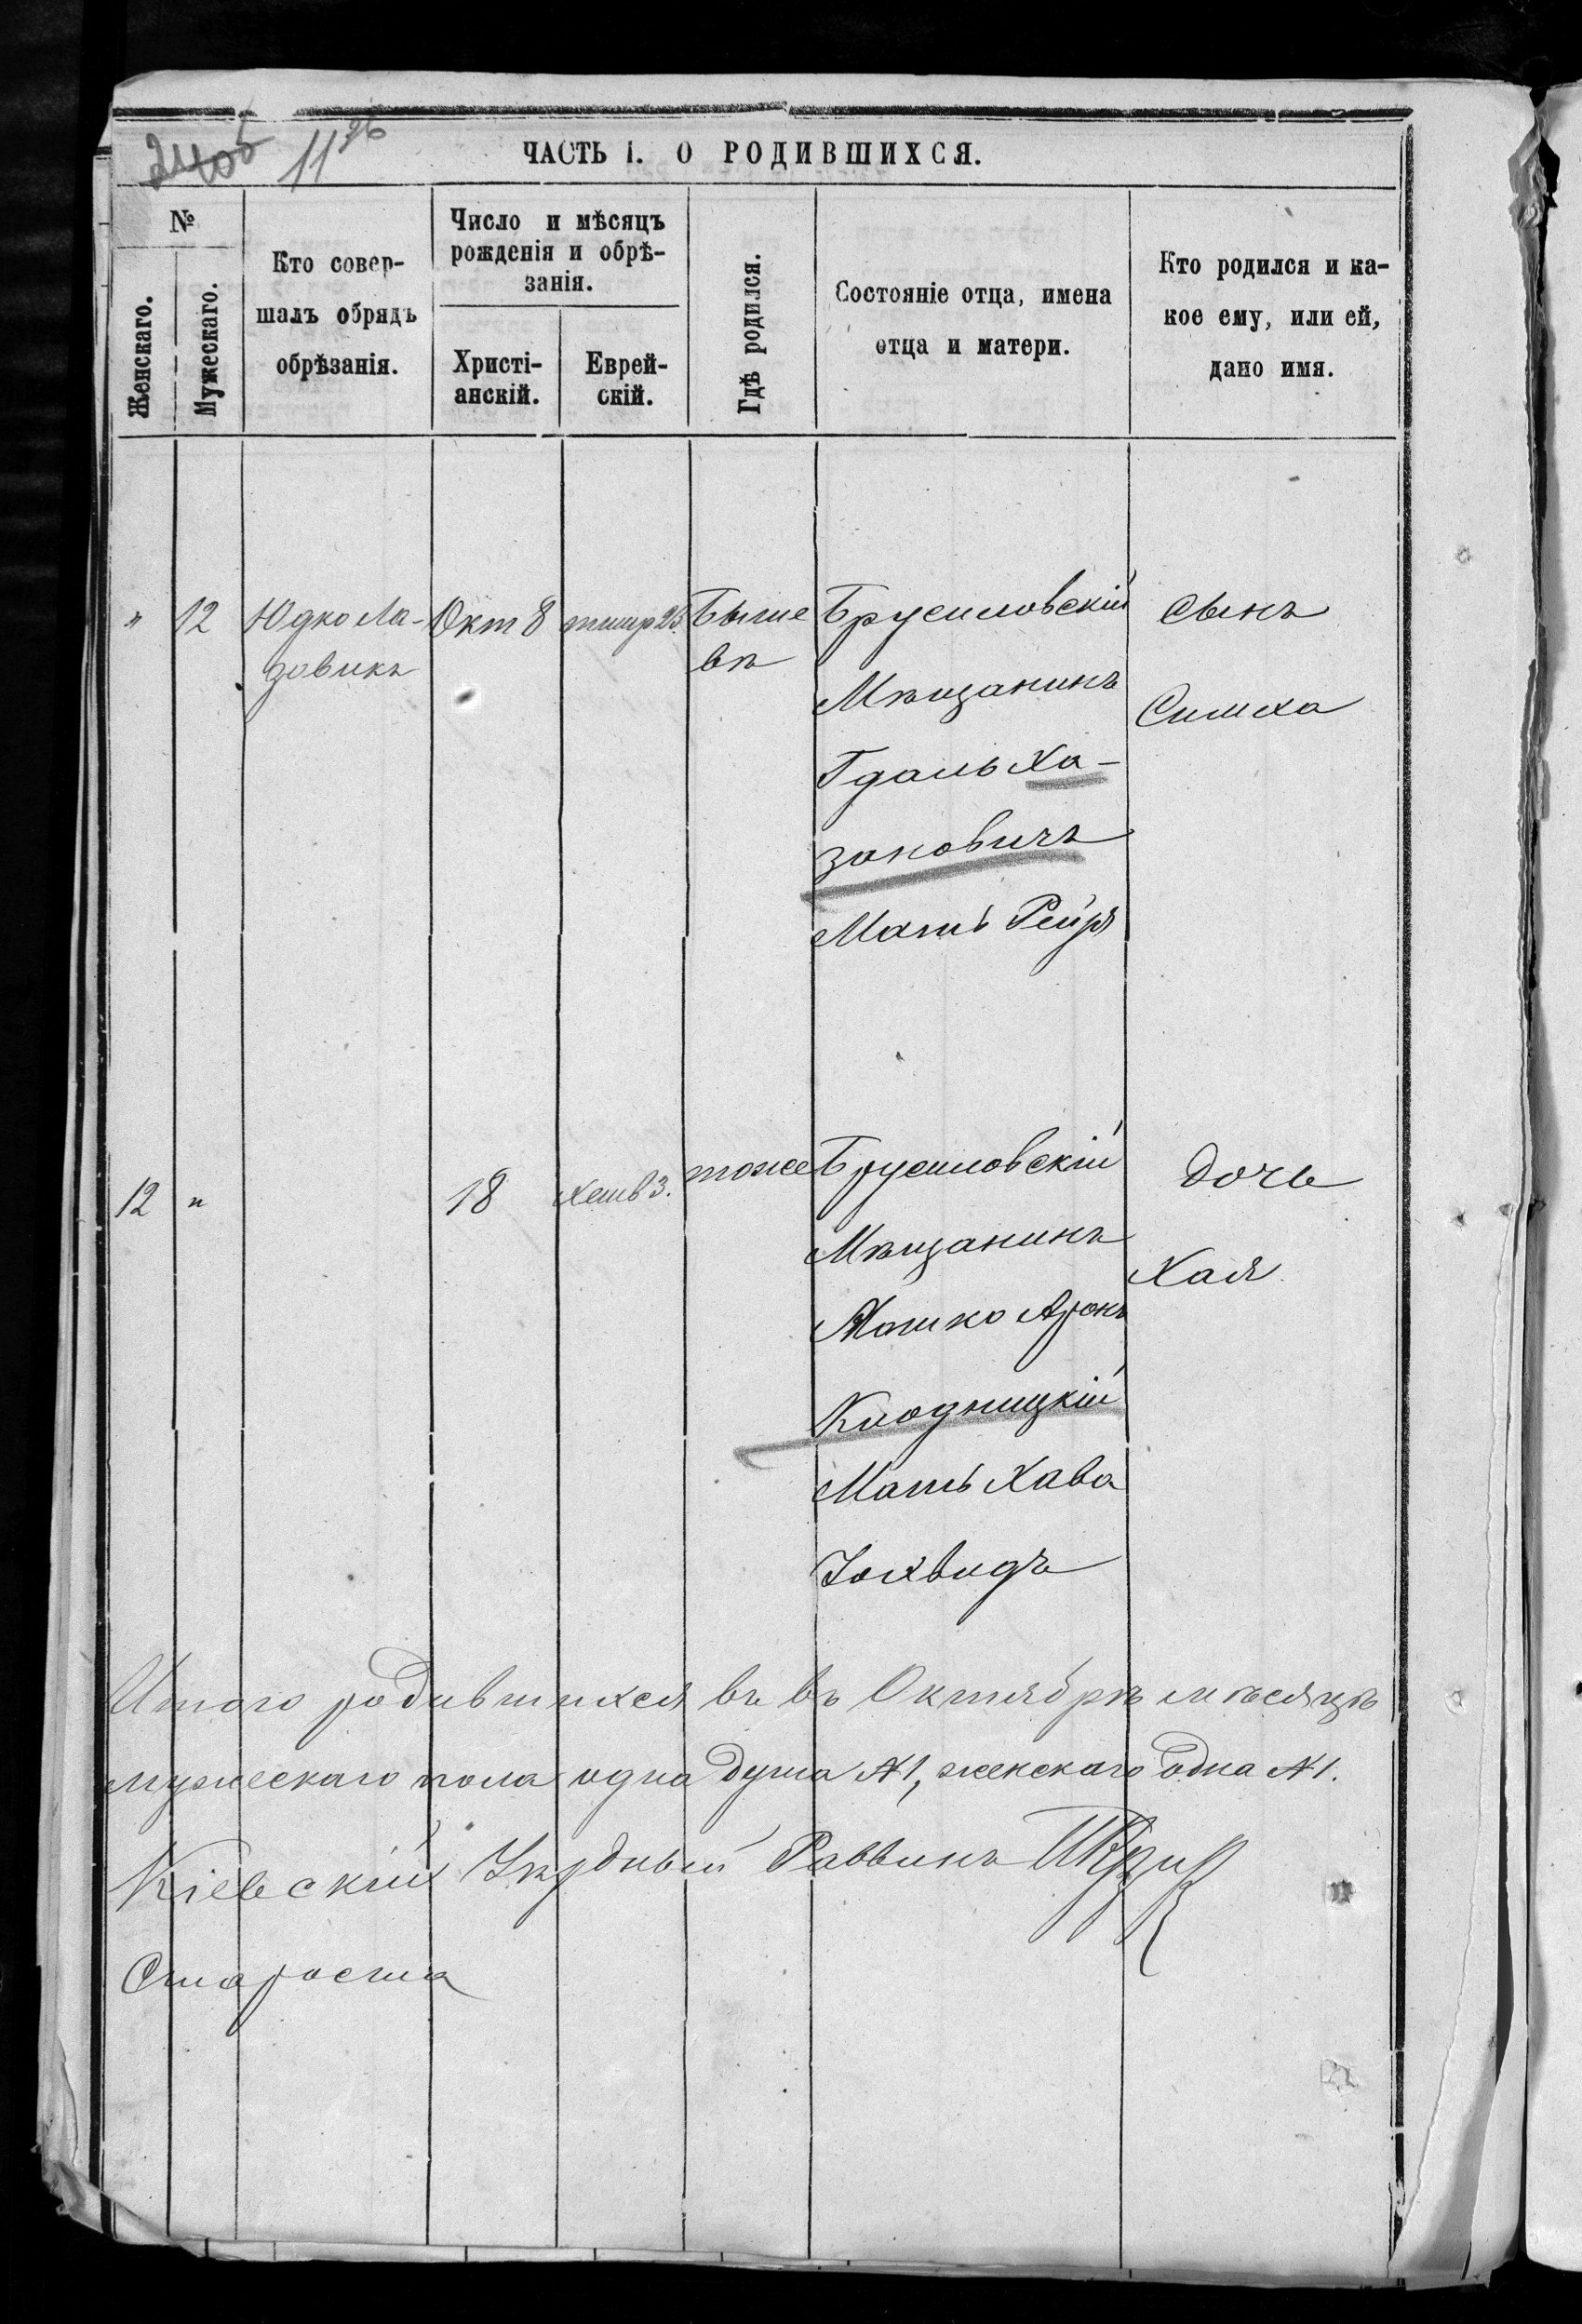 1126
ЧАСТЬ I. О РОДИВШИХСЯ.
№
Женскаго.
Мужескаго.
Кто совер-
шалъ обрядъ
обрѣзанія.
Число и мѣсяцъ
рожденія и обрѣ-
занія.
Христі-
анскій.
Еврей-
скій.
Гдѣ родился.
Состояніе отца, имена
отца и матери.
Кто родился и ка-
кое ему, или ей,
дано имя.
" 12 Юдко Ла-
зовикъ
Окт 8
тишр 23.
Быше
вѣ
Брусиловскій
Мѣщанинъ
Гдаль Ха-
зановичъ
Мать Рейзя
Сынъ
Симха
12 "
18
Хешв 3.
тоже
Брусиловскій
Мѣщанинъ
Мошко Аронъ
Клодницкій
Мать Хава
Іохвидъ
Дочь
Хая
Итого родившихся въ въ Октябрѣ мѣсяцѣ
мужескаго пола одна душа №1, женскаго одна №1.
Кіевскій Уѣздный Раввинъ
Староста